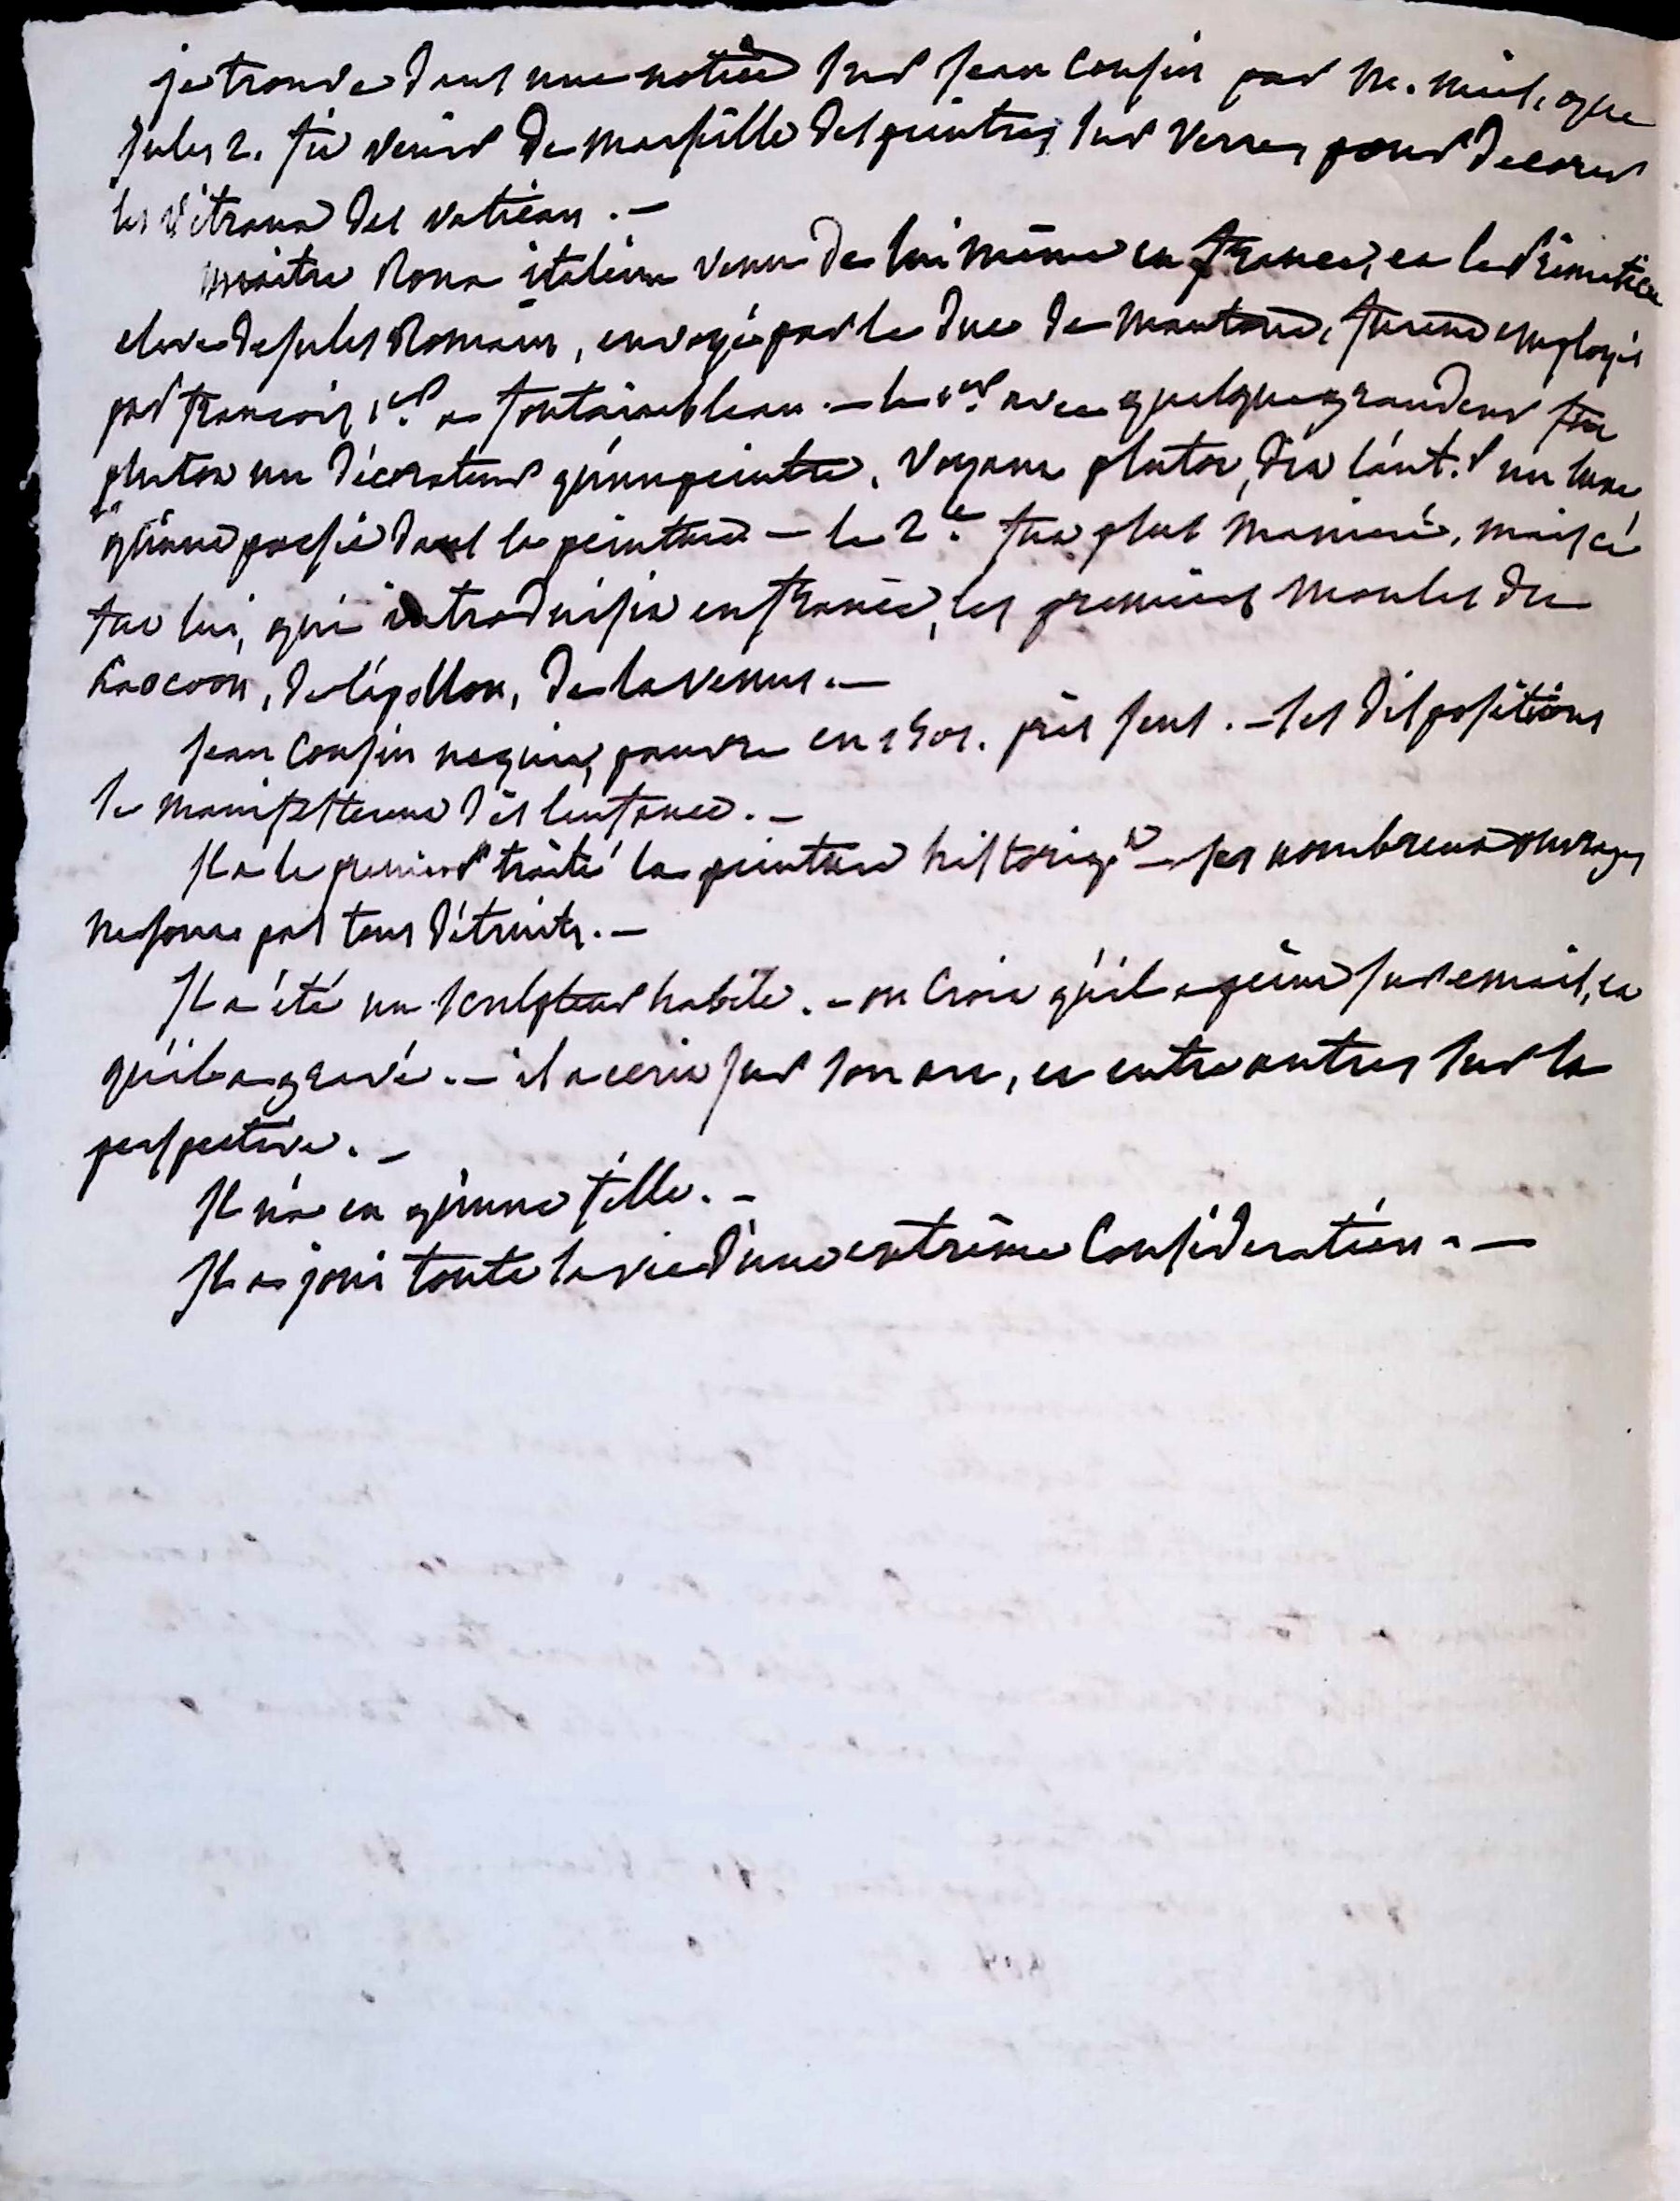 je trouve dans une notice sur Jean Cousin par M. Miel, que
Jules 2. fit venir de Marseille des peintres sur verres pour decorer
les vitraux del vatican. —
maitre Roux italien venu de lui même en france, et le Primatice
eleve de Jules Romain, envoyé par le duc de Mantoue, furent employés
par françois 1er. a fontainebleau. — le 1er. avec quelque grandeur fut
plutot un décorateur qu'un peintre. voyant plutot, dit l'aut.r un luxe
qu'une poesie dans la peinture — le 2e. fut plus maniéré, mais ce
fut lui, qui introduisit en france, les premiers moules du
Laocoon, de l'apollon, de la venus. —
Jean Cousin naquit, pauvre en 1501. près sens. — ses dispositions
se manifesterent dès lenfance. —
Il a le premier traité la peinture historiq.e — ses nombreux ouvrages
ne sont pas tous détruits. —
Il a été un sculpteur habile. — on croit qu'il a peint sur email, et
qu'il a gravé. — il a ecrit sur son art, et entre autres sur la
perspective. —
Il n'a eu qu'une fille. —
Il a joui toute sa vie d'une extrême consideration. —